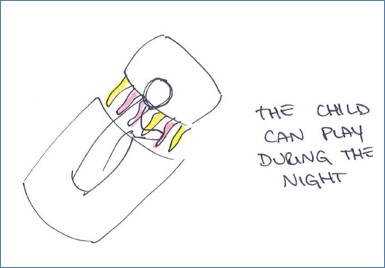 THE CHILD
CAN PLAY
DURING THE
NIGHT